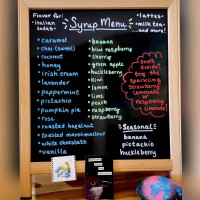 Flavor for:
italian
sodas
Syrup Menu
lattes
milk tea
and more!
caramel
chai (sweet)
coconut
honey
irish cream
lavender
peppermint
pistachio
pumpkin pie
rose
roasted hazelnut
toasted marshmallow
white chocolate
vanilla
banana
blue raspberry
cherry
green apple
huckleberry
kiwi
lemon
lime
peach
raspberry
strawberry
can't
decide?
try the
sparkling
strawberry
lemonade
or
raspberry
limeade!
Seasonal:
banana
pistachio
huckleberry